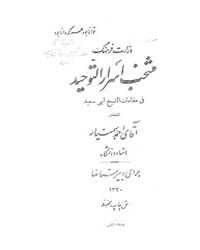 وزارت فرهنگ
منتخب اسرار التوحید
فی مقامات الشیخ ابی سعید
بانتخاب
آقای احمد بهمنیار
استاد دانشگاه
برای دبیرستانها
۱۳۲۰
حق چاپ محفوظ